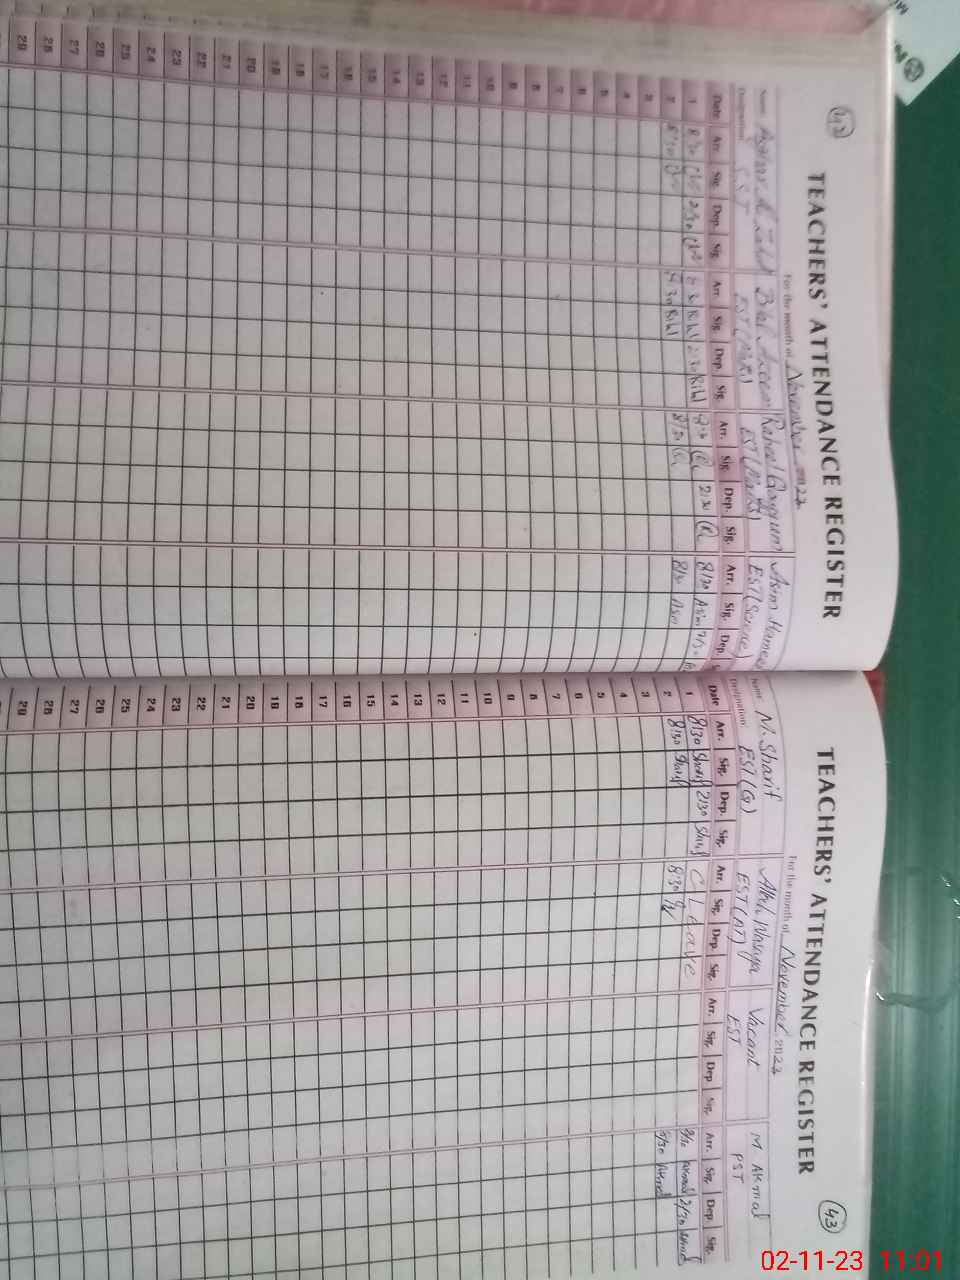 42
TEACHERS' ATTENDANCE REGISTER
For the month of November 2023
Name Bilal Raheel Qayyum Asim Hameed
Designation S.S.T EST (Math) EST (Math) EST (Science)
Date Arr. Sig. Dep. Sig. Arr. Sig. Dep. Sig. Arr. Sig. Dep. Sig. Arr. Sig. Dep.
1 8:30 2:30 8:30 2:30 8:30 2:30 8/30 Asim 2/30
2 8:30 8:30 8/30 8/30 Asim
3
4
5
6
7
8
9
10
11
12
13
14
15
16
17
18
19
20
21
22
23
24
25
26
27
28
29
TEACHERS' ATTENDANCE REGISTER
43
For the month of November 2023
Name M. Sharif Vacant M Akmal
Designation EST (G) EST (AT) EST PST
Date Arr. Sig. Dep. Sig. Arr. Sig. Dep. Sig. Arr. Sig. Dep. Sig. Arr. Sig. Dep. Sig.
1 8/30 Sharif 2/30 Sharif C Leave 8/30 Akmal 2/30 Akmal
2 8/30 Sharif 8:30 8/30 Akmal
3
4
5
6
7
8
9
10
11
12
13
14
15
16
17
18
19
20
21
22
23
24
25
26
27
28
29
02-11-23 11:01